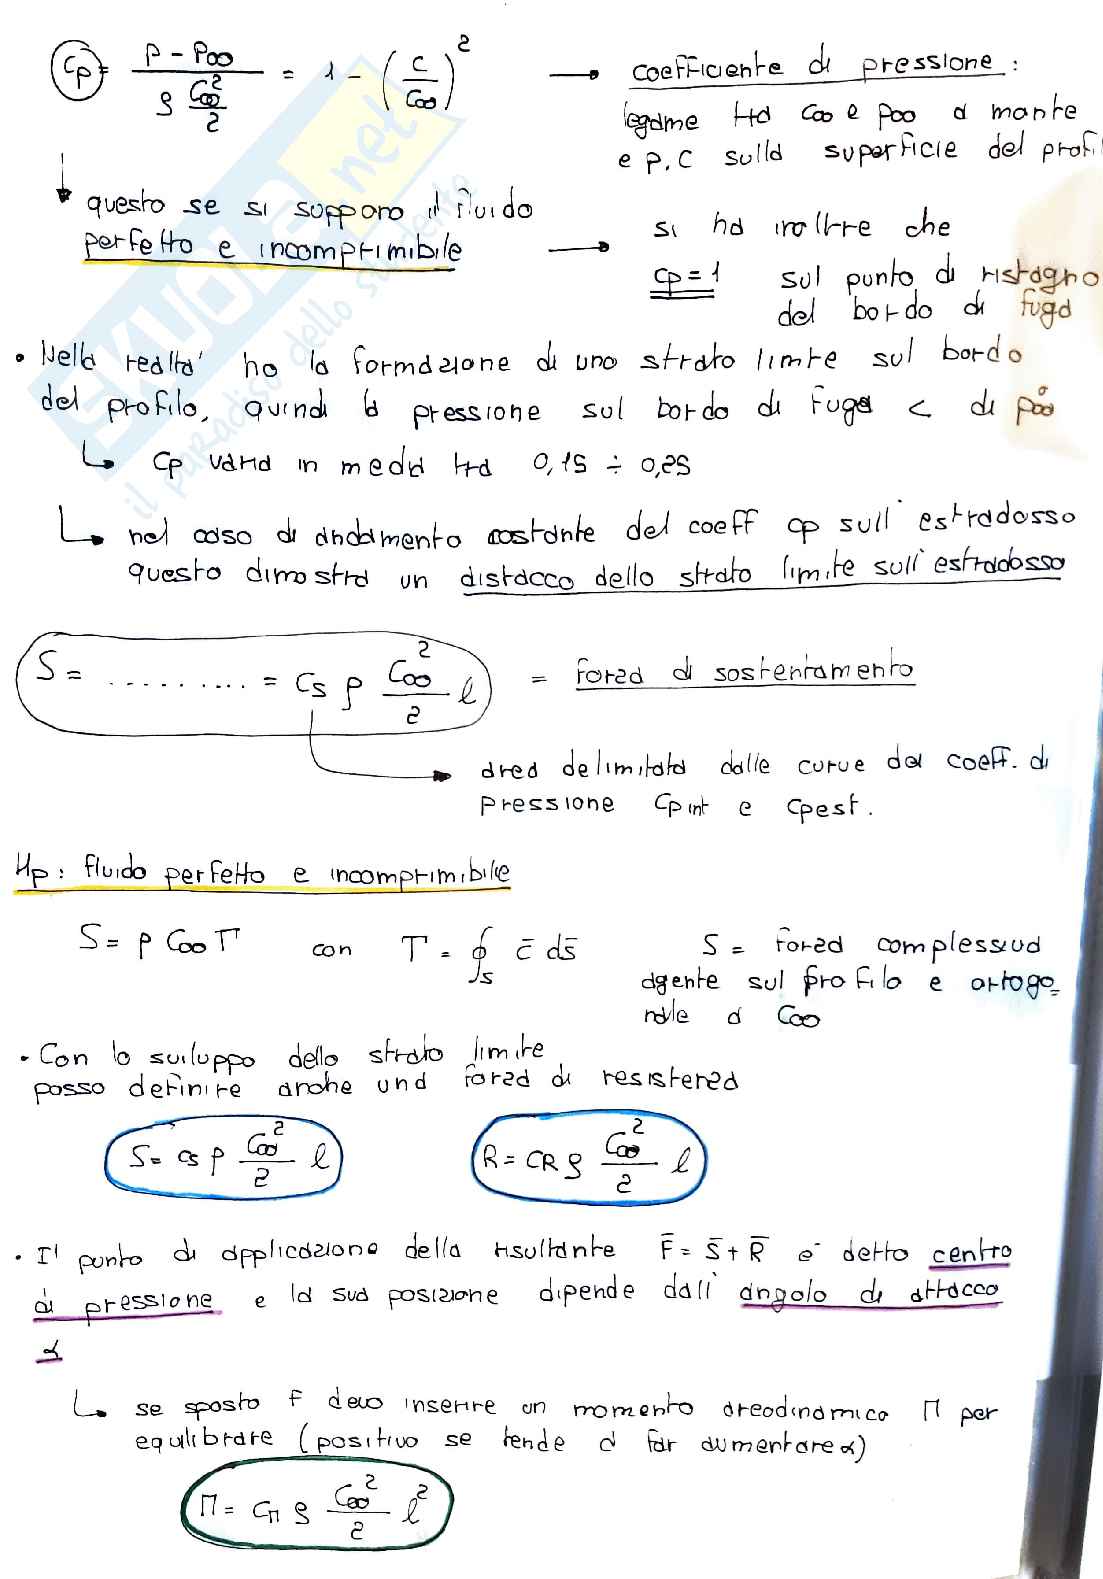 Cp = (p - p∞) / (ρ C∞²/2) = 1 - (C/C∞)² → coefficiente di pressione:
legame tra C∞ e p∞ a monte
e p, C sulla superficie del profi
questo se si suppone il fluido
perfetto e incomprimibile → si ha inoltre che
Cp = 1 sul punto di ristagno
del bordo di fuga
• Nella realta' ho la formazione di uno strato limite sul bordo
del profilo, quindi la pressione sul bordo di fuga < di p∞
↳ Cp varia in media tra 0,15 ÷ 0,25
↳ nel caso di andamento costante del coeff cp sull'estradosso
questo dimostra un distacco dello strato limite sull'estradosso
S = .......... = Cs ρ C∞²/2 l = forza di sostentamento
→ area delimitata dalle curve del coeff. di
pressione Cp int e Cp est.
Hp: fluido perfetto e incomprimibile
S = ρ C∞ Γ con Γ = ∮s c̄ ds̄ S = forza complessiva
agente sul profilo e ortogo=
nale a C∞
• Con lo sviluppo dello strato limite
posso definire anche una forza di resistenza
S = Cs ρ C∞²/2 l R = CR ρ C∞²/2 l
• Il punto di applicazione della risultante F̄ = S̄ + R̄ e' detto centro
di pressione e la sua posizione dipende dall'angolo di attacco
α
↳ se sposto F devo inserire un momento areodinamico M per
equilibrare (positivo se tende a far aumentare α)
M = CM ρ C∞²/2 l²
SKUOLA.net
il paradiso dello studente